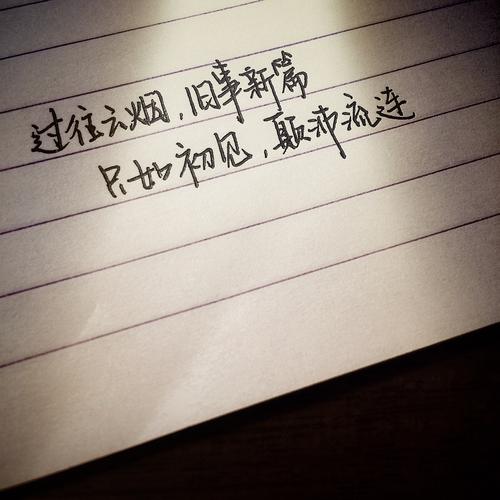 过往云烟,旧事新篇
只如初见,颠沛流连